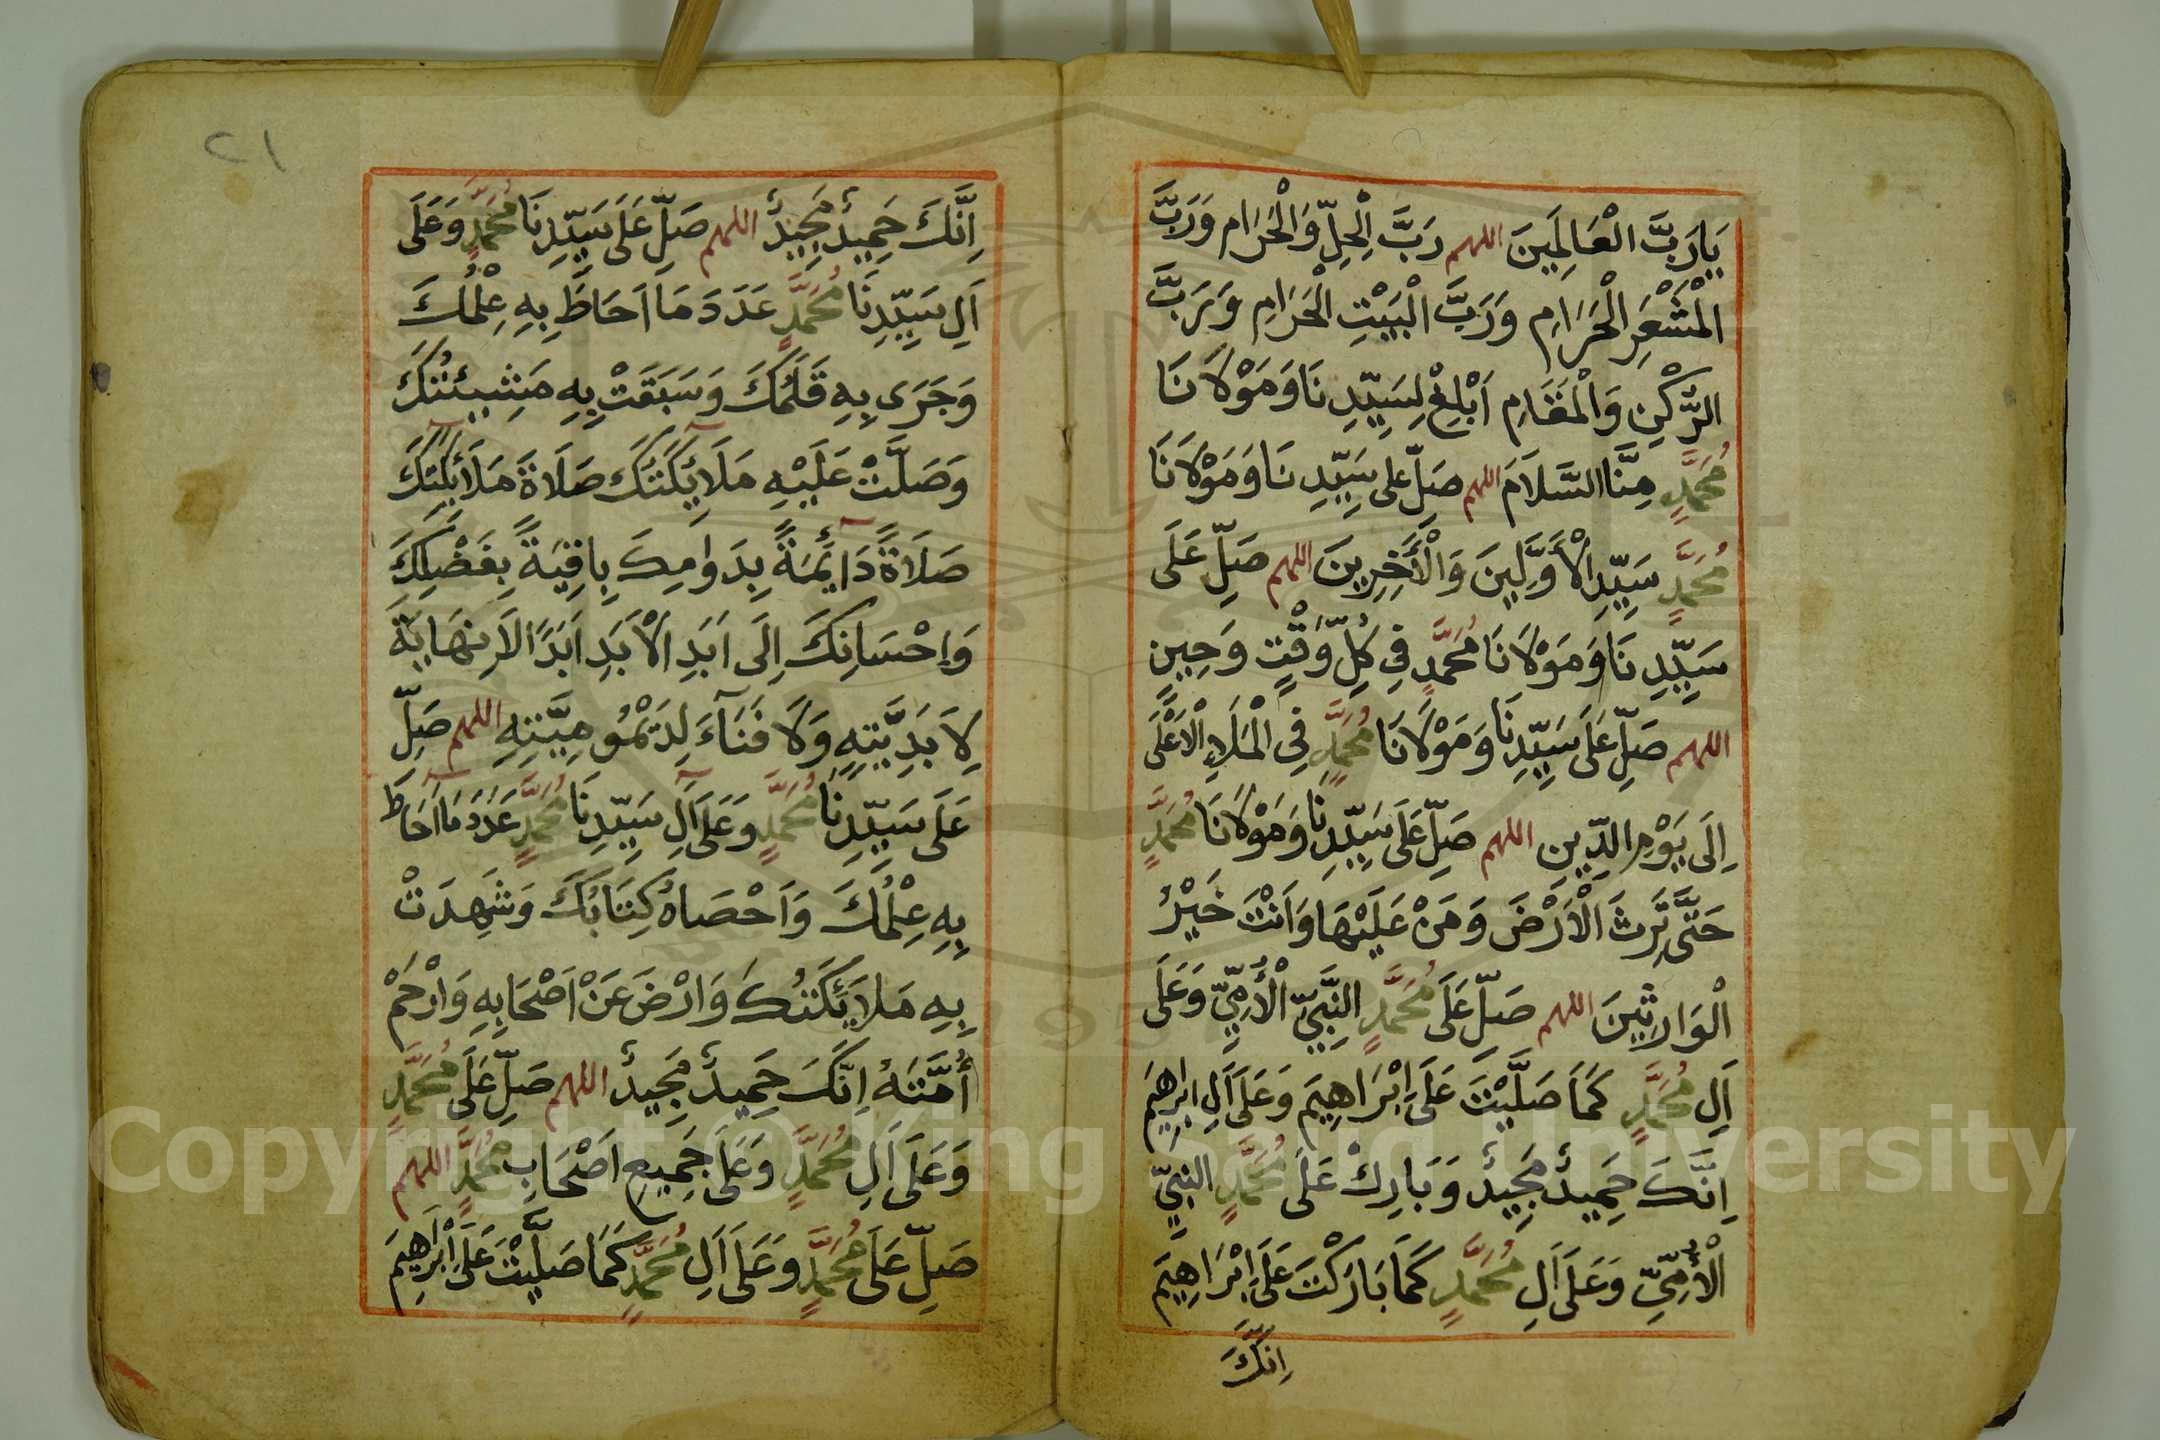 يَارَبَّ الْعَالَمِينَ اللهم رَبَّ الْحِلِّ وَالْحَرَامِ وَرَبَّ
الْمَشْعَرِ الْحَرَامِ وَرَبَّ الْبَيْتِ الْحَرَامِ وَرَبَّ
الرُّكْنِ وَالْمَقَامِ اَبْلِغْ لِسَيِّدِنَا وَمَوْلَانَا
مُحَمَّدٍ مِنَّا السَّلَامَ اللهم صَلِّ على سَيِّدِنَا وَمَوْلَانَا
مُحَمَّدٍ سَيِّدِ الْأَوَّلِينَ وَالْأَخِرِينَ اللهم صَلِّ عَلَى
سَيِّدِنَا وَمَوْلَانَا مُحَمَّدٍ فِي كُلِّ وَقْتٍ وَحِينٍ
اللهم صَلِّ عَلَى سَيِّدِنَا وَمَوْلَانَا مُحَمَّدٍ فِي الْمَلَاءِ الْأَعْلَى
اِلَى يَوْمِ الدِّينِ اللهم صَلِّ عَلَى سَيِّدِنَا وَمَوْلَانَا مُحَمَّدٍ
حَتَّى تَرِثَ الْأَرْضَ وَمَنْ عَلَيْهَا وَاَنْتَ خَيْرُ
الْوَارِثِينَ اللهم صَلِّ عَلَى مُحَمَّدٍ النَّبِيِّ الْأُمِّيِّ وَعَلَى
اَلِ مُحَمَّدٍ كَمَا صَلَّيْتَ عَلَى اِبْرَاهِيمَ وَعَلَى اَلِ ابْرَاهِيمَ
اِنَّكَ حَمِيدٌ مَجِيدٌ وَبَارِكْ عَلَى مُحَمَّدٍ النَّبِيِّ
الْأُمِّيِّ وَعَلَى اَلِ مُحَمَّدٍ كَمَا بَارَكْتَ عَلَى اِبْرَاهِيمَ
اِنَّكَ
٢١
اِنَّكَ حَمِيدٌ مَجِيدٌ اللهم صَلِّ عَلَى سَيِّدِنَا مُحَمَّدٍ وَعَلَى
اَلِ سَيِّدِنَا مُحَمَّدٍ عَدَدَ مَا اَحَاطَ بِهِ عِلْمُكَ
وَجَرَى بِهِ قَلَمُكَ وَسَبَقَتْ بِهِ مَشِيئَتُكَ
وَصَلَّتْ عَلَيْهِ مَلَائِكَتُكَ صَلَاةَ مَلَائِكَتِكَ
صَلَاةً دَائِمَةً بِدَوَامِكَ بِاقِيَةً بِفَضْلِكَ
وَاِحْسَانِكَ اِلَى اَبَدِ الْاَبَدِ اَبَدًا لَا نِهَايَةَ
لِاَبَدِيَّتِهِ وَلَا فَنَآءَ لِدَيْمُومِيَّتِهِ اللهم صَلِّ
عَلَى سَيِّدِنَا مُحَمَّدٍ وَعَلَى آلِ سَيِّدِنَا مُحَمَّدٍ عَدَدَ مَا اَحَاطَ
بِهِ عِلْمُكَ وَاَحْصَاهُ كِتَابُكَ وَشَهِدَتْ
بِهِ مَلَائِكَتُكَ وَارْضَ عَنْ اَصْحَابِهِ وَارْحَمْ
أُمَّتَهُ اِنَّكَ حَمِيدٌ مَجِيدٌ اللهم صَلِّ عَلَى مُحَمَّدٍ
وَعَلَى اَلِ مُحَمَّدٍ وَعَلَى جَمِيعِ اَصْحَابِ مُحَمَّدٍ اللهم
صَلِّ عَلَى مُحَمَّدٍ وَعَلَى اَلِ مُحَمَّدٍ كَمَا صَلَّيْتَ عَلَى اِبْرَاهِيمَ
1957
Copyright © King Saud University